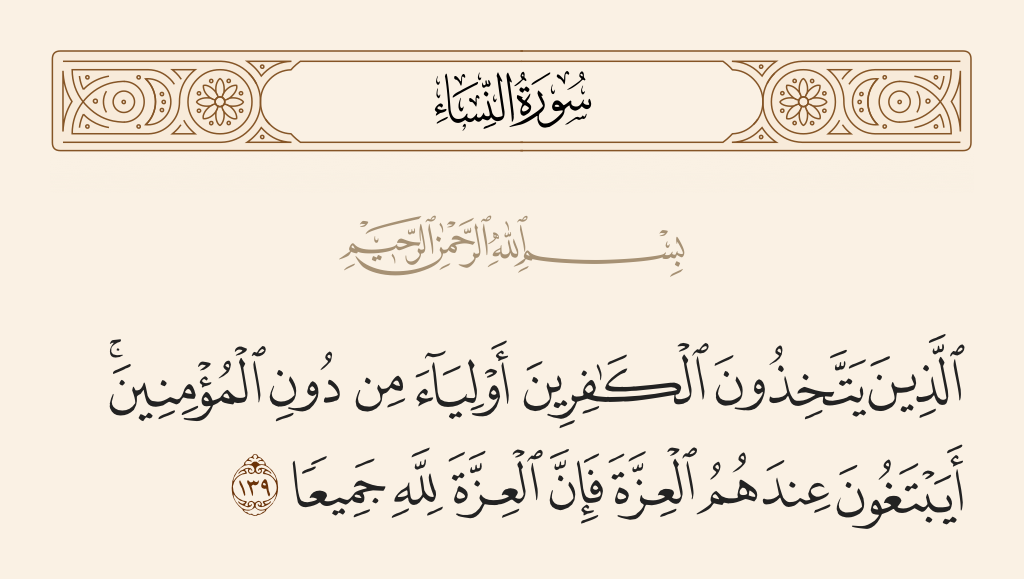 سُورَةُ النِّسَاءِ
بِسْمِ ٱللَّهِ ٱلرَّحْمَٰنِ ٱلرَّحِيمِ
ٱلَّذِينَ يَتَّخِذُونَ ٱلْكَـٰفِرِينَ أَوْلِيَآءَ مِن دُونِ ٱلْمُؤْمِنِينَ ۚ
أَيَبْتَغُونَ عِندَهُمُ ٱلْعِزَّةَ فَإِنَّ ٱلْعِزَّةَ لِلَّهِ جَمِيعًا ١٣٩